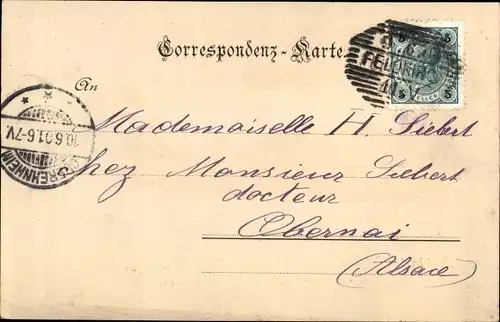 Correspondenz-Karte.
5
5
FELDKIR
An
Mademoiselle H. Siebert
10.6.01.6-7V.
chez Monsieur Siebert
docteur
Obernai
(Alsace)